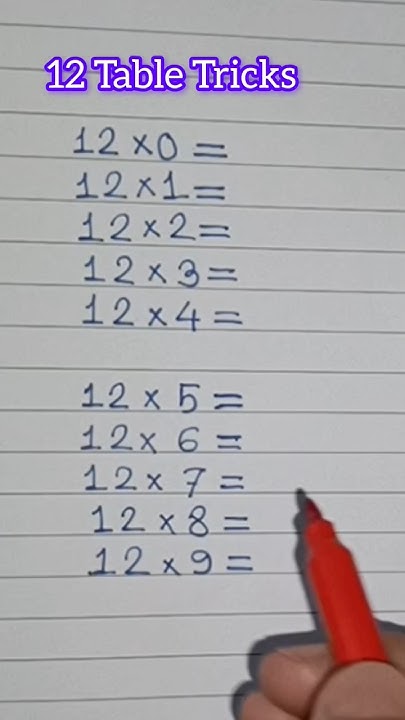 12 Table Tricks
12 × 0 =
12 × 1 =
12 × 2 =
12 × 3 =
12 × 4 =
12 × 5 =
12 × 6 =
12 × 7 =
12 × 8 =
12 × 9 =